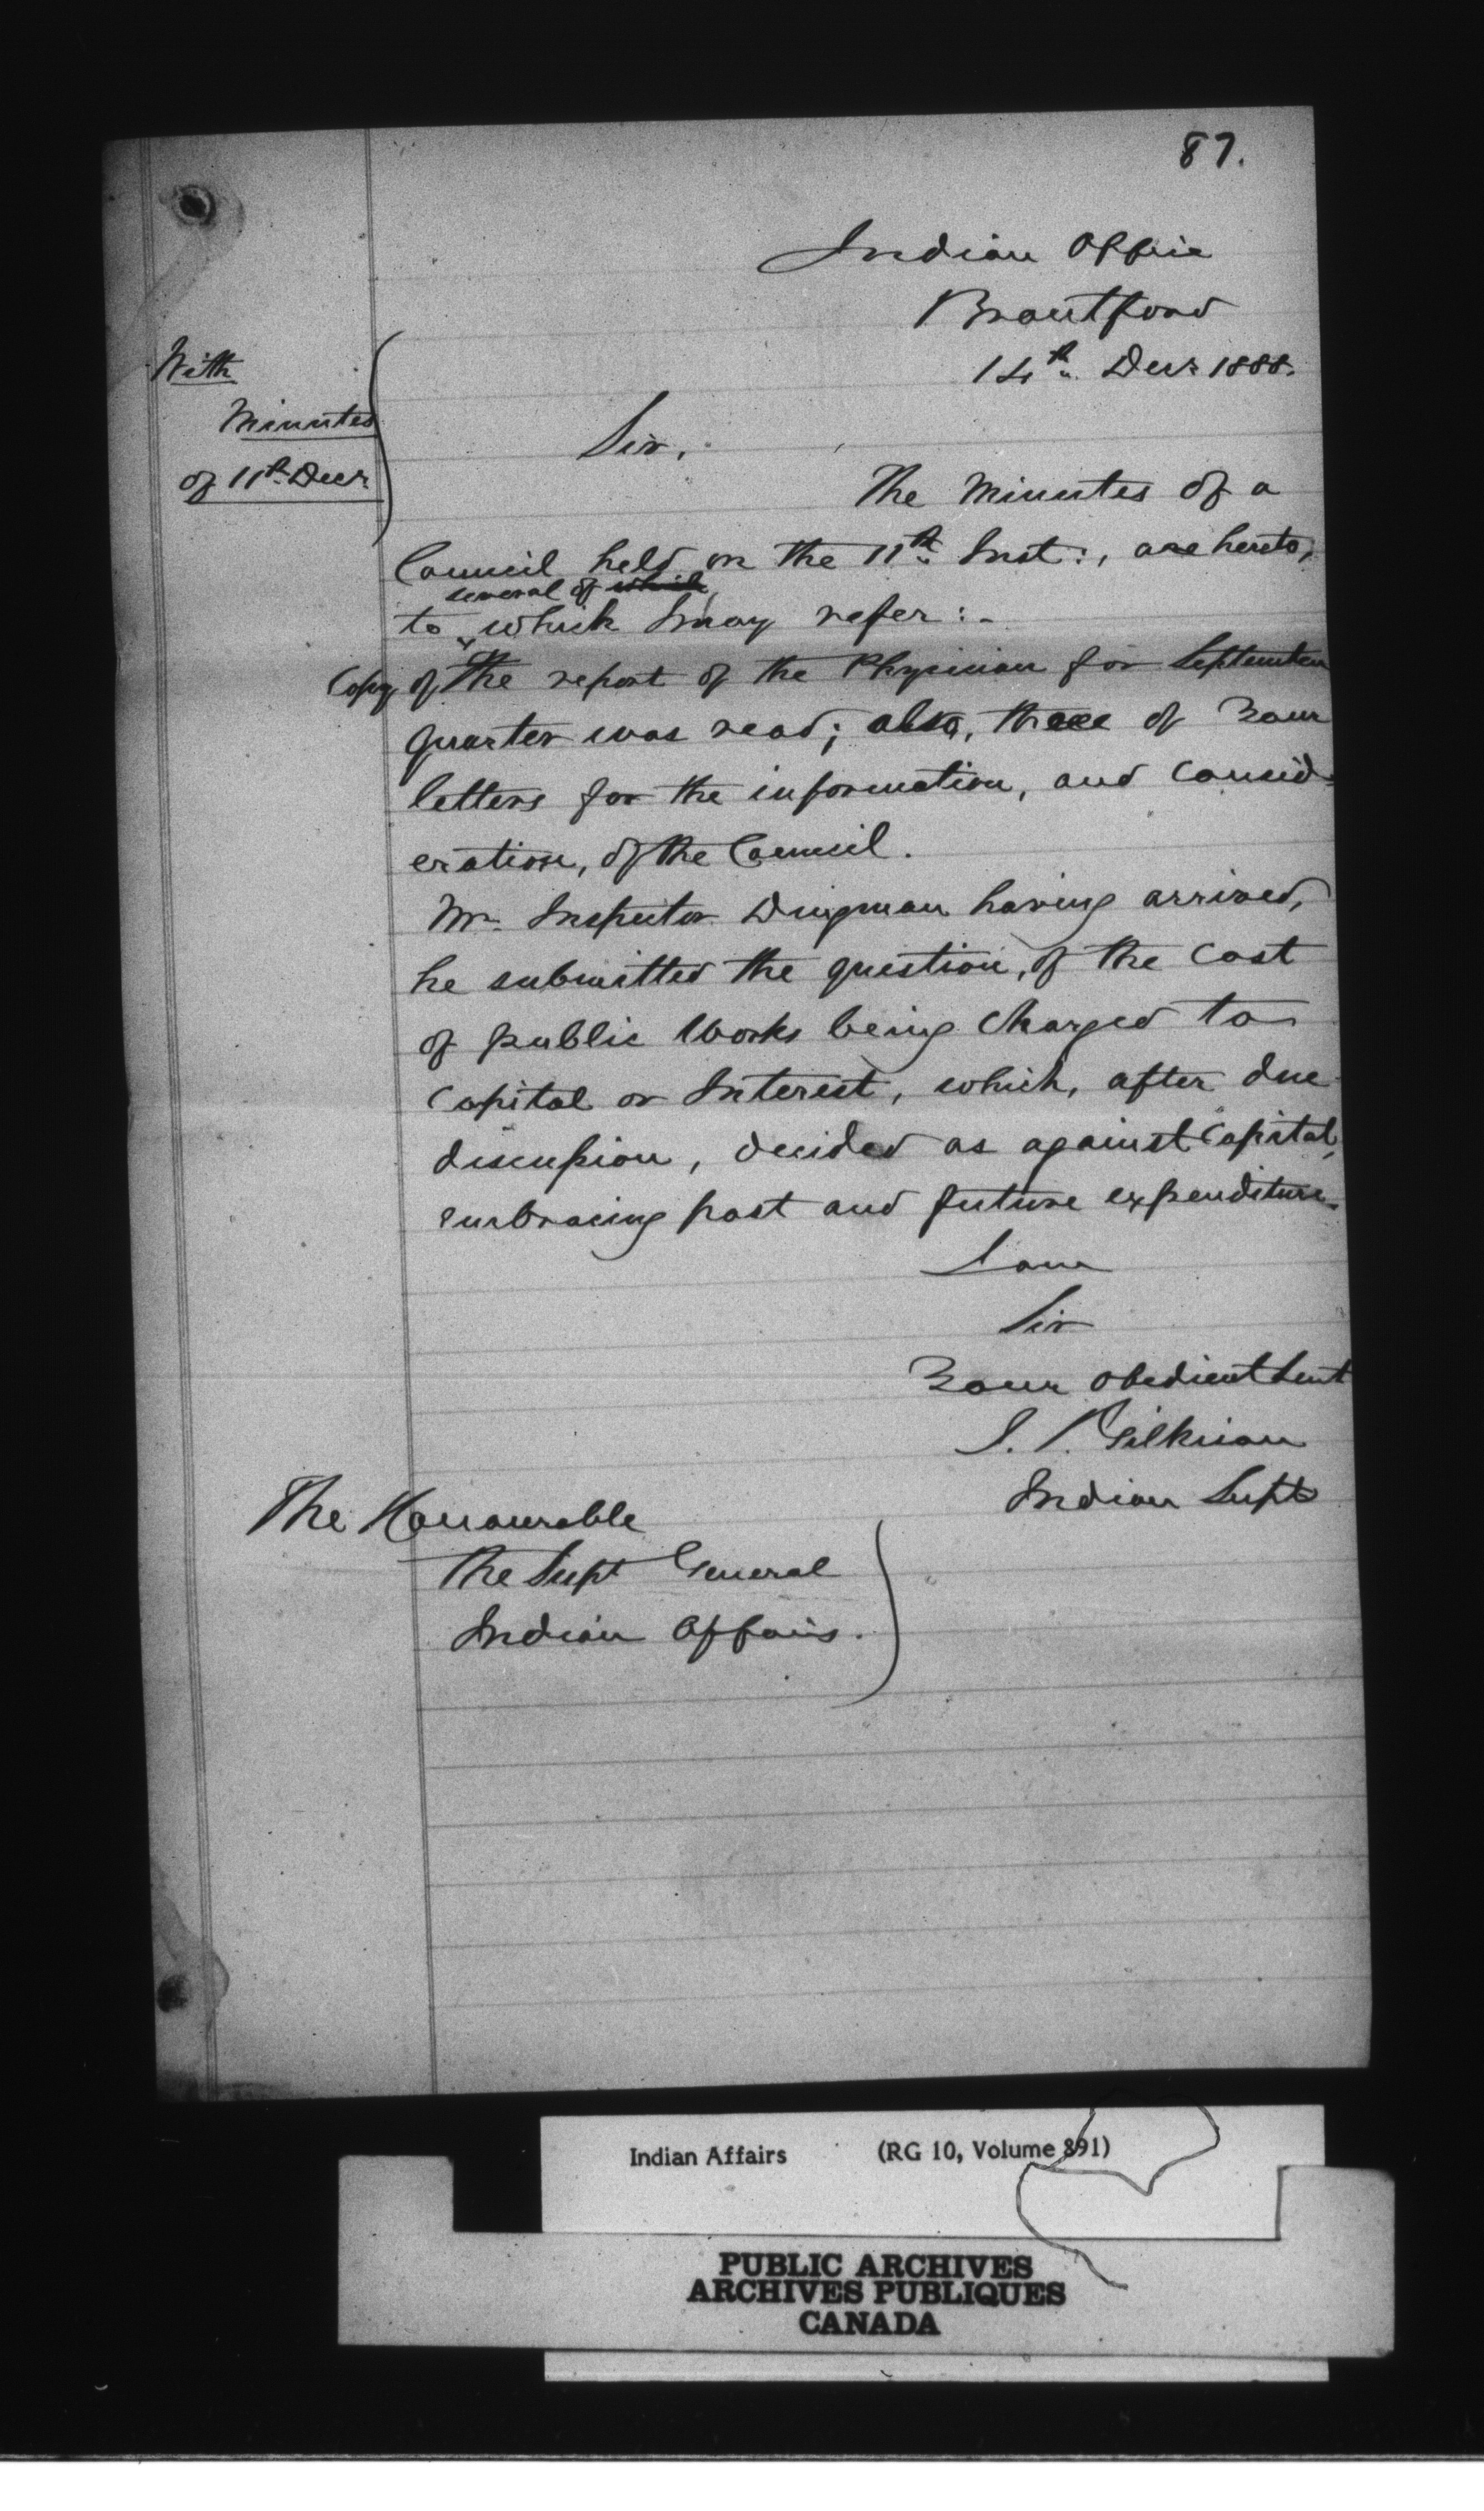 87.
Indian Office
Brantford
14th Decr 1888.
With
Minutes
of 11th Decr
Sir,
The Minutes of a
Council held on the 11th Inst:, are hereto,
several of which
to which I may refer:-
Copy of the report of the Physician for September
quarter was read; also, three of Your
letters for the information, and consid-
eration, of the Council.
Mr. Inspector Dingman having arrived,
he submitted the question, of the cost
of public Works being charged to
Capital or Interest, which, after due
discussion, decided as against Capital,
embracing past and future expenditure.
I am
Sir
Your obedient Servt
J. T. Gilkison
Indian Supt
The Honourable
The Supt General
Indian Affairs.
Indian Affairs (RG 10, Volume 891)
PUBLIC ARCHIVES
ARCHIVES PUBLIQUES
CANADA